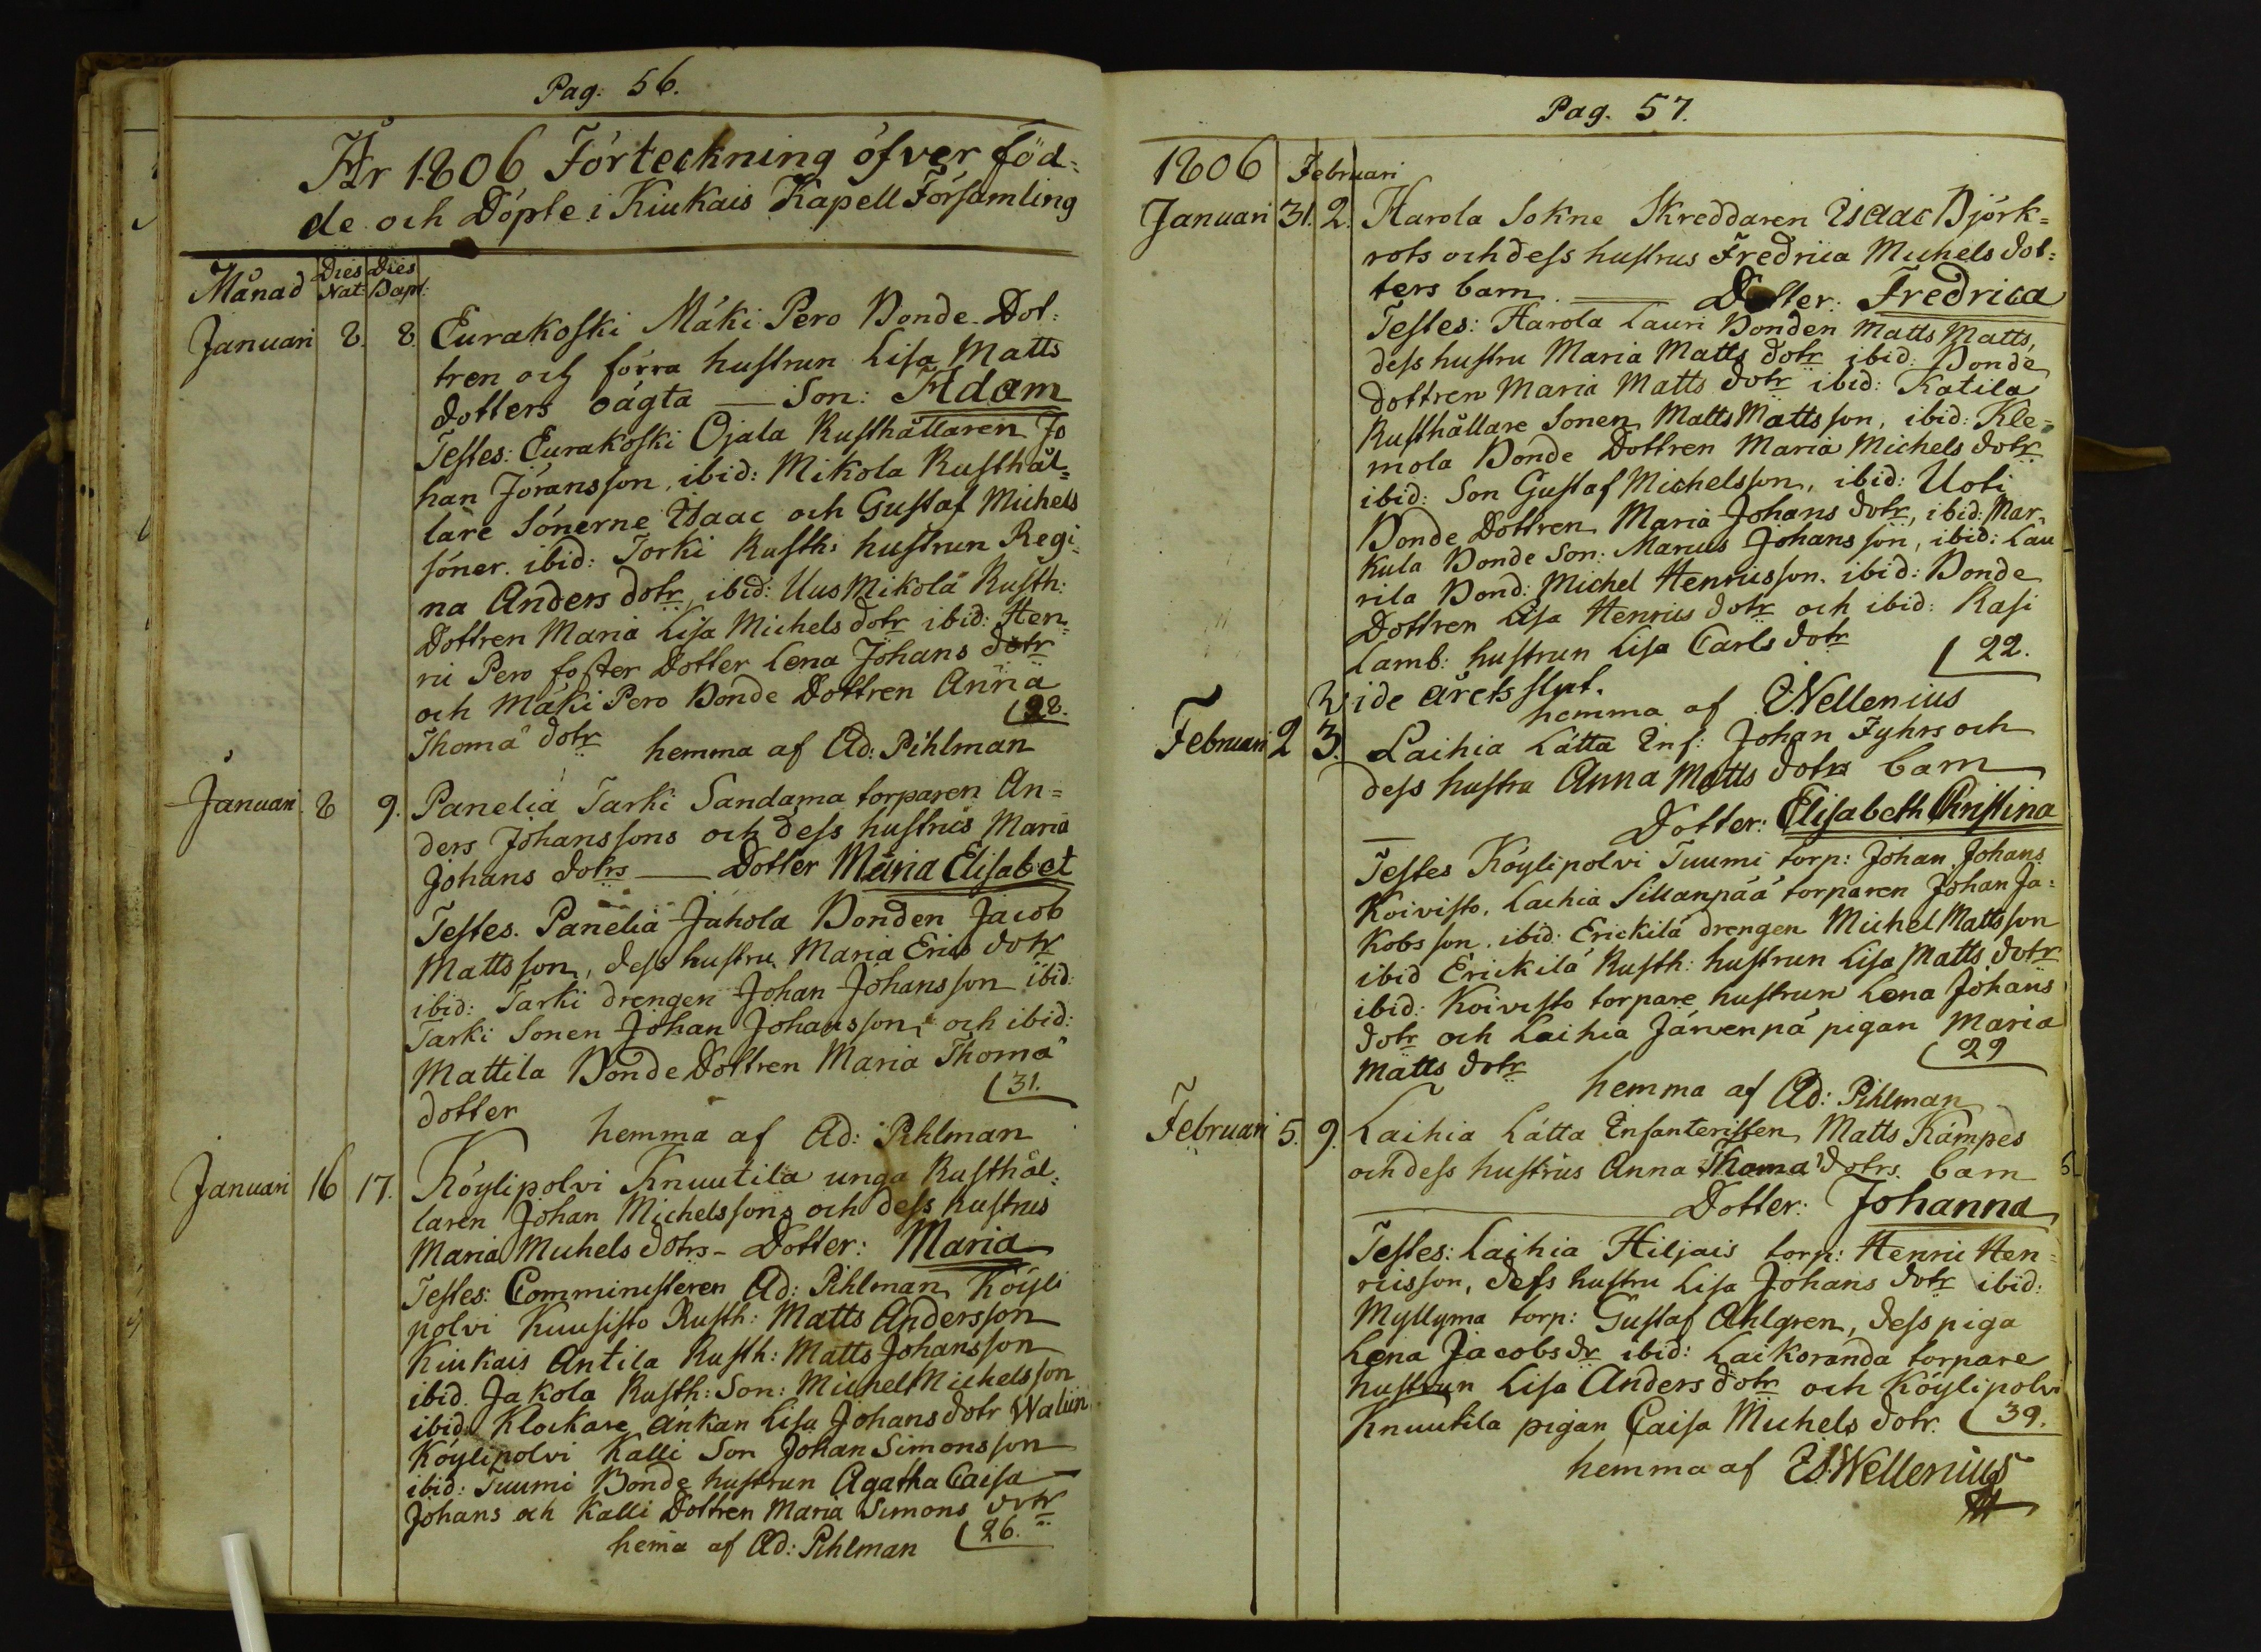 Pag: 56.
År 1806 Förteckning öfver föd-
de och Döpte i Kiukais Kapell Församling
Månad Dies Nat: Dies Bapt:
Januari 8. 8. Eurakoski Mäki Pero Bonde Dot-
tren och förra hustrun Lisa Matts
dotters oägta — Son: Adam
Testes: Eurakoski Ojala Rusthållaren Jo
han Jöransson, ibid: Mikola Rusthål-
lare Sönerne Isaac och Gustaf Michels
söner. ibid: Torki Rusth: hustrun Regi-
na Anders dotr, ibid: Uus Mikola Rusth:
Dottren Maria Lisa Michels dotr ibid: Hen-
ric Pero foster Dotter Lena Johans dotr
och Mäki Pero Bonde Dottren Anna
Thomä dotr (28.
hemma af Ad: Pihlman
Januari. 8 9. Panelia Tarki Sandama torparen An=
ders Johanssons och dess hustrus Maria
Johans dotrs — Dotter Maria Elisabet
Testes. Panelia Juhola Bonden Jacob
Mattsson, dess hustru Maria Erics dotr
ibid: Tarki drengen Johan Johansson ibid:
Tarki Sonen Johan Johansson, och ibid:
Mattila Bonde Dottren Maria Thomä
dotter (31.
hemma af Ad: Pihlman
Januari 16 17. Köylipolvi Knuutila unga Rusthål-
laren Johan Michelssons och dess hustrus
Maria Michels dotrs - Dotter: Maria
Testes: Comministeren Ad: Pihlman, Köyli
polvi Kuusisto Rusth: Matts Andersson
Kiukais Antila Rusth: Matts Johansson
ibid. Jakola Rusth: Son: Michel Michelsson
ibid. Klockare änkan Lisa Johans dotr Walin
Köylipolvi Kalli Son Johan Simonsson
ibid: Tuumi Bonde hustrun Agatha Caisa
Johans och Kalli Dottren Maria Simons dotr
hema af Ad: Pihlman (26.
Pag. 57.
1806 Februari
Januari 31. 2. Harola Sokne Skreddaren Isaac Björk=
rots och dess hustrus Fredrica Michels dot-
ters barn. — Dotter: Fredrica
Testes: Harola Lauri Bonden Matts Matts,
dess hustru Maria Matts dotr ibid: Bonde
dottren Maria Matts dotr ibid: Katila
Rusthållare Sonen Matts Mattsson, ibid: Kle-
mola Bonde Dottren Maria Michels dotr
ibid: Son Gustaf Michelsson, ibid: Uoti
Bonde Dottren Maria Johans dotr, ibid: Mar-
kula Bonde Son: Marcus Johansson, ibid: Lau
rila Bond: Michel Henricsson. ibid: Bonde
Dottren Lisa Henrics dotr och ibid: Rasi
Lamb: hustrun Lisa Carls dotr (22.
Vide årets slut.
hemma af Wellenius
Februari 2 3. Laihia Lätta Inf: Johan Fyhrs och
dess hustru Anna Matts dotrs barn
— Dotter: Elisabeth Christina
Testes Köylipolvi Tuumi torp: Johan Johans
Koivisto, Laihia Sillanpää torparen Johan Ja-
kobsson. ibid: Erickilä drengen Michel Mattsson
ibid Erickilä Rusth: hustrun Lisa Matts dotr
ibid: Koivisto torpare hustrun Lena Johans
dotr och Laihia Järvenpä pigan Maria
Matts dotr (29
hemma af Ad: Pihlman
Februari 5. 9. Laihia Lätta Infanteristen Matts Kämpes
och dess hustrus Anna Thoma dotrs. barn
— Dotter: Johanna
Testes: Laihia Hiljais torp: Henric Hen-
ricsson, dess hustru Lisa Johans dotr ibid:
Myllyma torp: Gustaf Ahlgren, dess piga
Lena Jacobs dr ibid: Laikoranda torpare
hustrun Lisa Anders dotr och Köylipolvi
Knuutila pigan Caisa Michels dotr. (39.
hemma af Wellenius